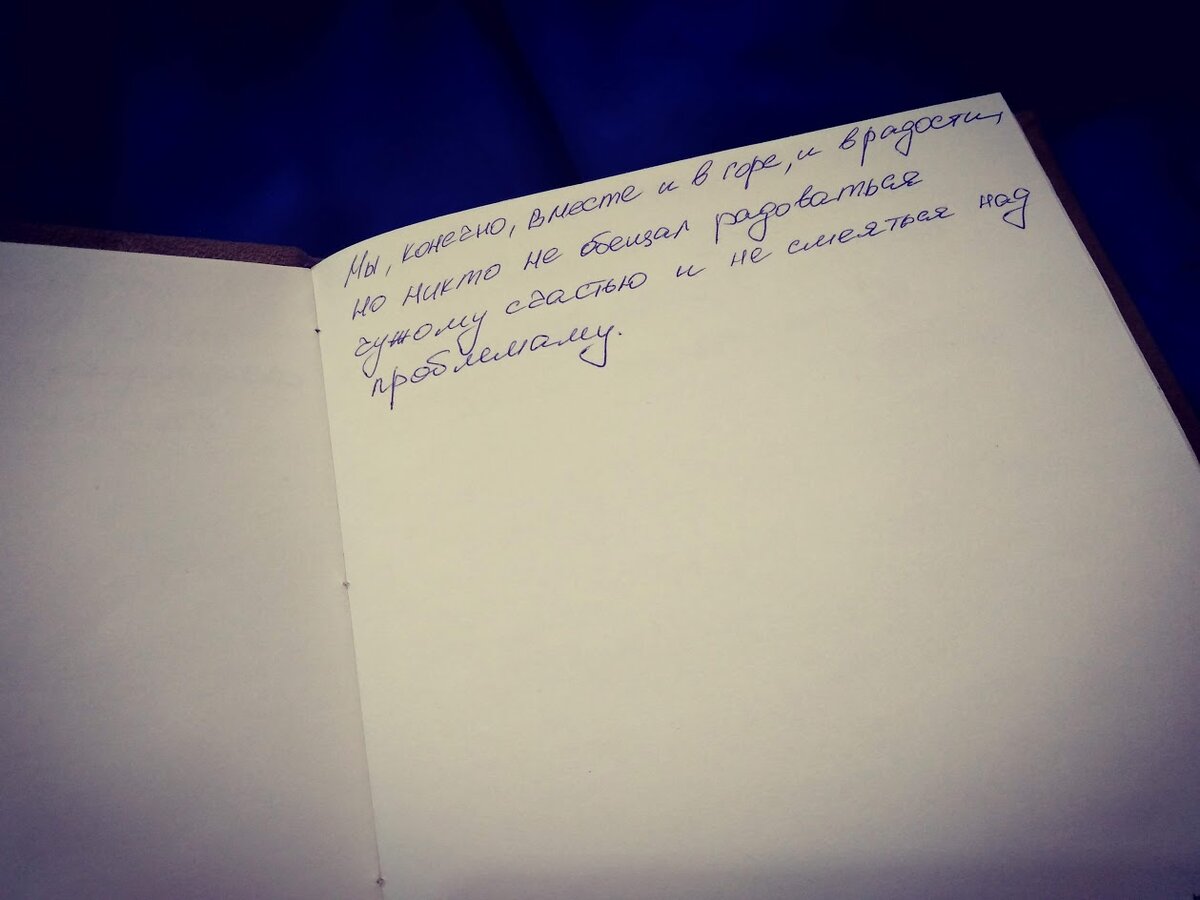 Мы, конечно, вместе и в горе, и в радости,
но никто не обещал радоваться
чужому счастью и не смеяться над
проблемаму.